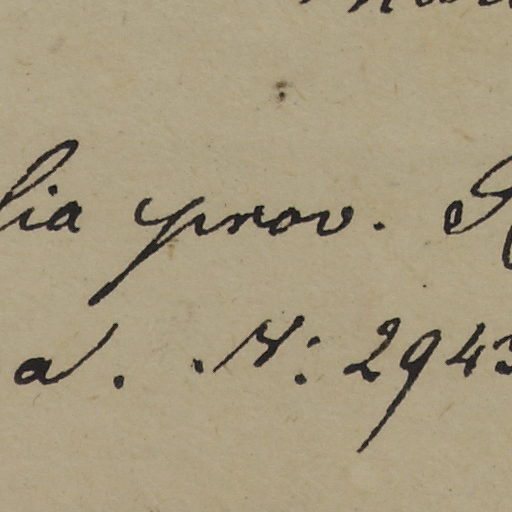 lia prov.
a. N: 2943